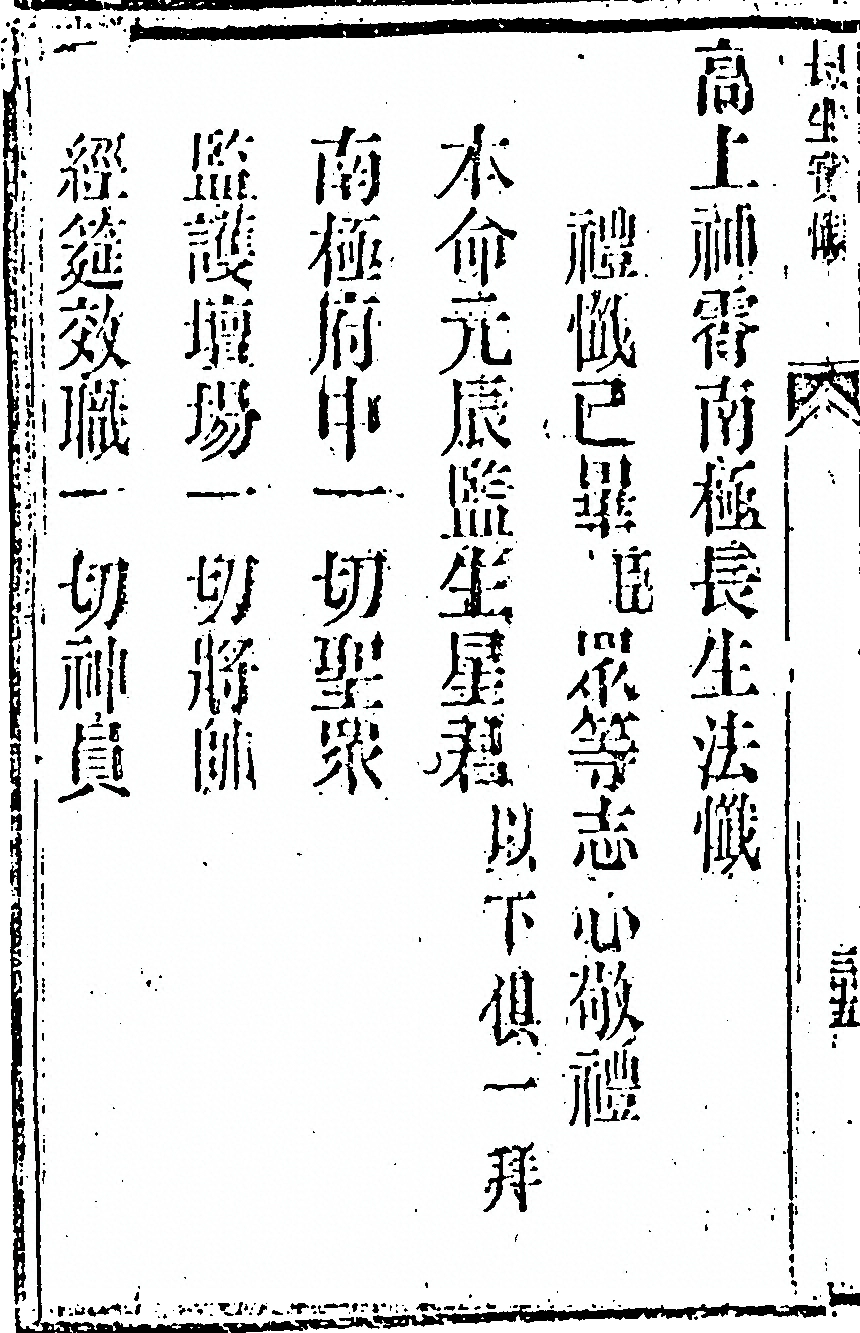 長生寶懺
高上神霄南極長生法懺
禮懺已畢臣眾等志心敬禮
本命元辰監生星君以下俱一拜
南極府中一切聖眾
監護壇場一切將帥
經筵效職一切神員
三十五